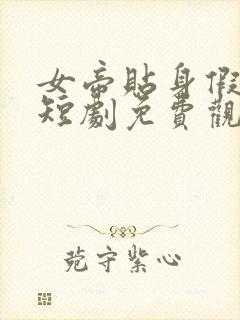 女帝貼身假
短劇免費觀
菀守紫心